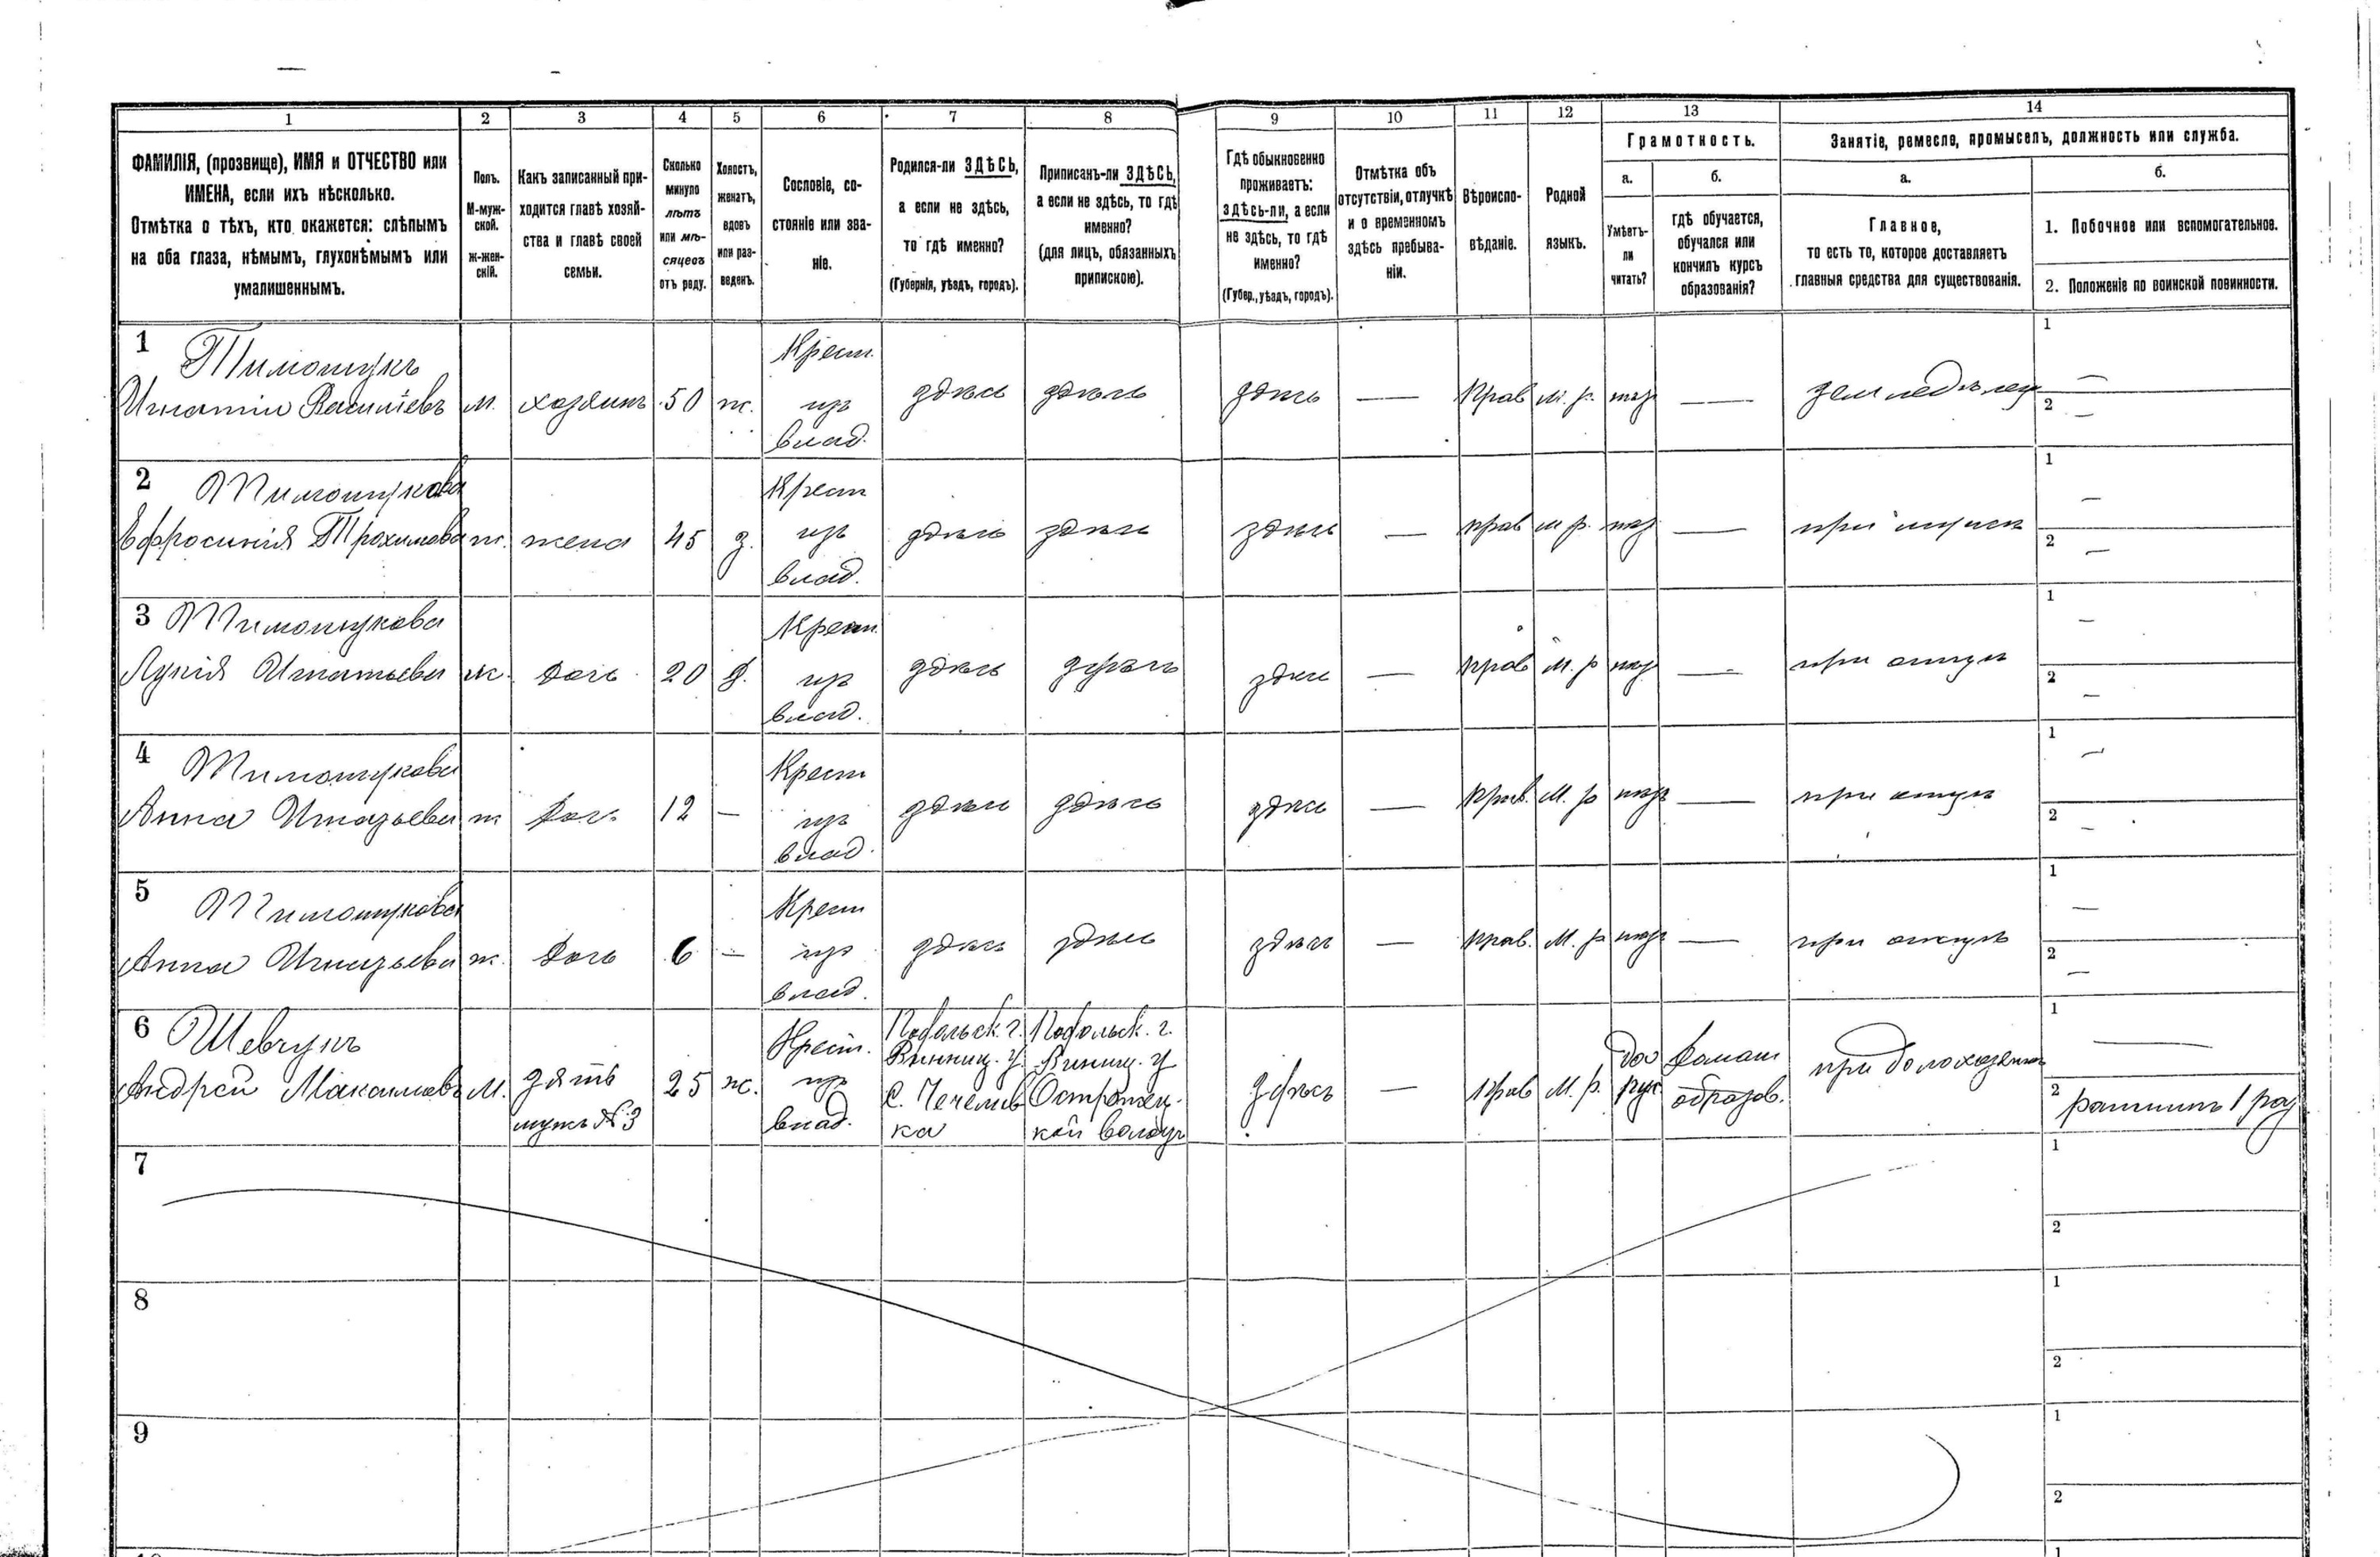 1 2 3 4 5 6 7 8 9 10 11 12 13 14
ФАМИЛІЯ, (прозвище), ИМЯ и ОТЧЕСТВО или
ИМЕНА, если ихъ нѣсколько.
Отмѣтка о тѣхъ, кто окажется: слѣпымъ
на оба глаза, нѣмымъ, глухонѣмымъ или
умалишеннымъ.
Полъ.
М-муж-
ской.
ж-жен-
скій.
Какъ записанный при-
ходится главѣ хозяй-
ства и главѣ своей
семьи.
Сколько
минуло
лѣтъ
или мѣ-
сяцевъ
отъ роду.
Холостъ,
женатъ,
вдовъ
или раз-
веденъ.
Сословіе, со-
стояніе или зва-
ніе.
Родился-ли ЗДѢСЬ,
а если не здѣсь,
то гдѣ именно?
(Губернія, уѣздъ, городъ).
Приписанъ-ли ЗДѢСЬ,
а если не здѣсь, то гдѣ
именно?
(для лицъ, обязанныхъ
припискою).
Гдѣ обыкновенно
проживаетъ:
здѣсь-ли, а если
не здѣсь, то гдѣ
именно?
(Губер., уѣздъ, городъ).
Отмѣтка объ
отсутствіи, отлучкѣ
и о временномъ
здѣсь пребыва-
ніи.
Вѣроиспо-
вѣданіе.
Родной
языкъ.
Грамотность.
а.
Умѣетъ-
ли
читать?
б.
гдѣ обучается,
обучался или
кончилъ курсъ
образованія?
Занятіе, ремесло, промыселъ, должность или служба.
а.
Главное,
то есть то, которое доставляетъ
главныя средства для существованія.
б.
1. Побочное или вспомогательное.
2. Положеніе по воинской повинности.
1 Тимощукъ
Игнатій Васильевъ
м. хозяинъ 50 ж.
Крест.
изъ
влад.
здѣсь здѣсь здѣсь — Прав м. р. — земледѣлец
1 —
2 —
2 Тимощукова
Ефросинія Трохимова
ж. жена 45 з.
Крест
изъ
влад.
здѣсь здѣсь здѣсь — прав м р. —
при
1 —
2 —
3 Тимощукова
Лукія Игнатьева
ж. дочь 20 з.
Крест.
изъ
влад.
здѣсь здѣсь здѣсь — прав м. р — при
1 —
2 —
4 Тимощукова
Анна Игнатьева
ж доч. 12 —
Крест
изъ
влад.
здѣсь здѣсь здѣсь — прав. м. р — при
1 —
2 —
5 Тимощукова
Анна Игнатьева
ж. дочь 6 —
Крест
изъ
влад.
здѣсь здѣсь здѣсь — прав. м. р — при
1 —
2 —
6 Шевчукъ
Андрей Максимовъ
м.
зять
мужъ №3
25 ж.
Крест.
изъ
влад.
Подольск. г.
Винниц. у.
с. Чечелив
ка
Подольск. г.
Винниц. у
кой волод
здѣсь — прав м. р.
рус
домаш
образов.
при
1 —
2 ратникъ 1 раз
7
1
2
8
1
2
9
1
2
1